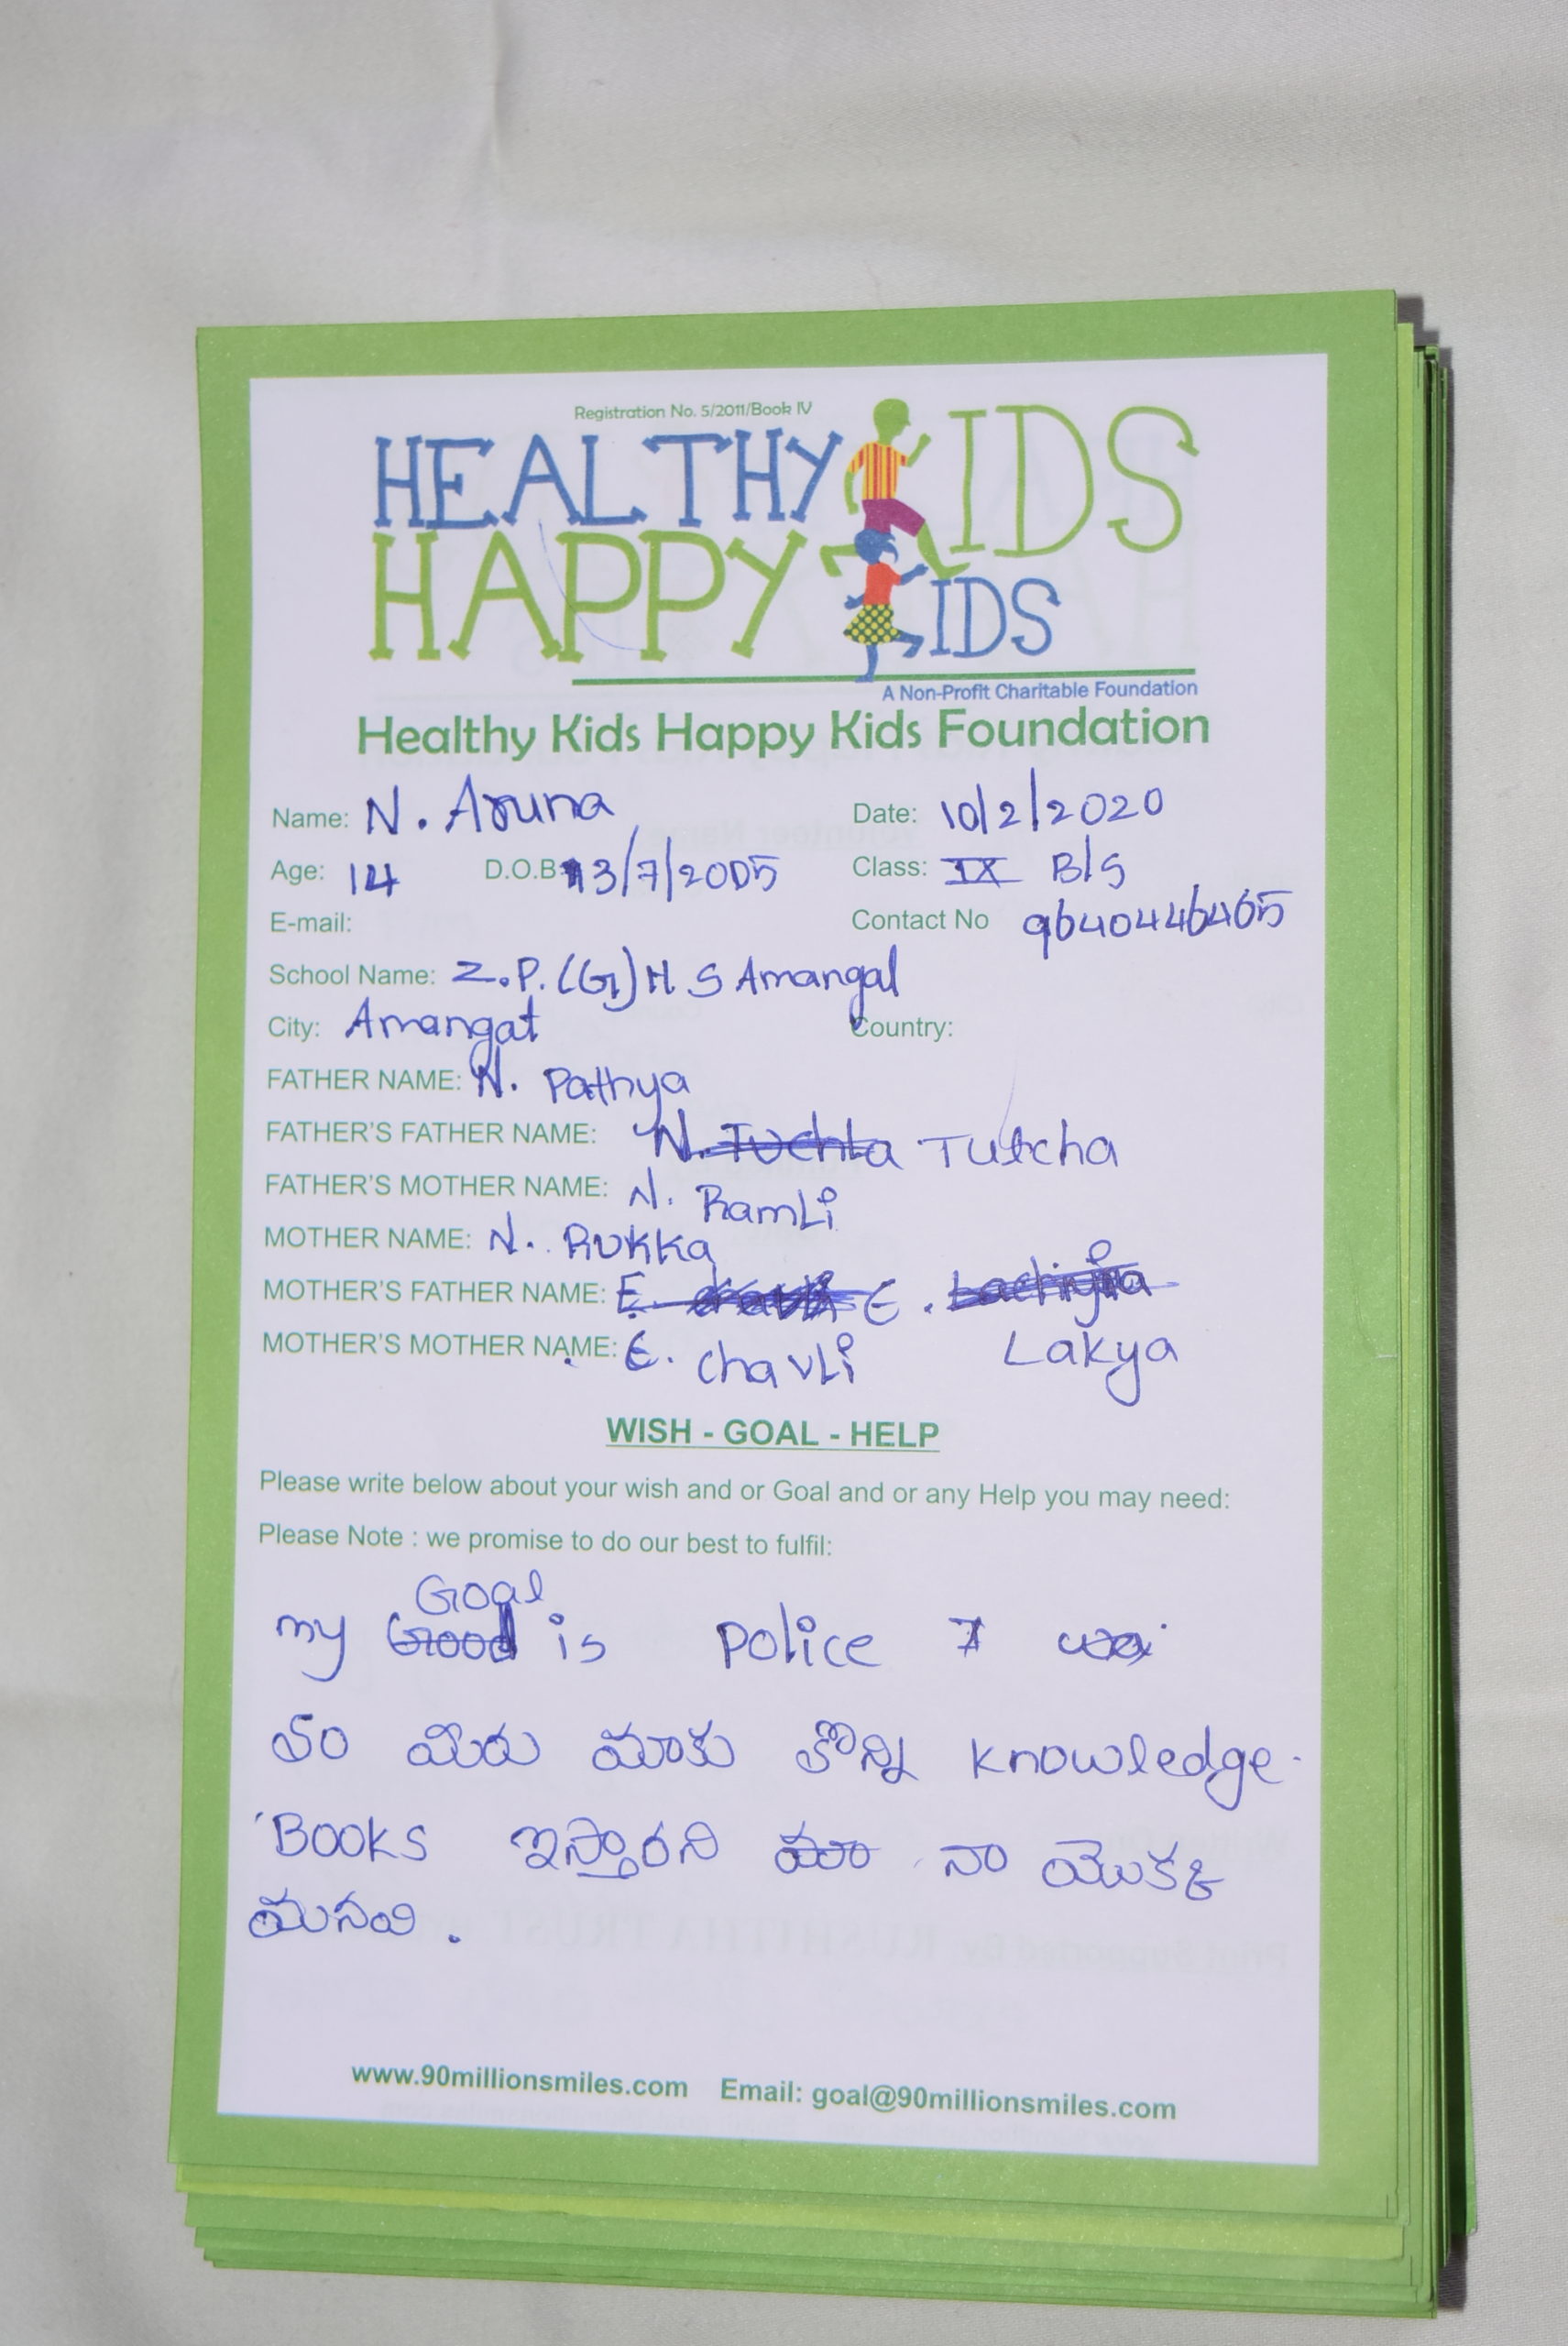 Registration No. 5/2011/Book IV
HEALTHY KIDS
HAPPY KIDS
A Non-Profit Charitable Foundation
Healthy Kids Happy Kids Foundation
Name: N. Aruna Date: 10/2/2020
Age: 14 D.O.B 13/7/2005 Class: IX B/S
E-mail: Contact No 9640446465
School Name: Z.P.(G)H.S Amangal
City: Amangat Country:
FATHER NAME: N. Pathya
FATHER'S FATHER NAME: N. Tutcha
FATHER'S MOTHER NAME: N. RamLi
MOTHER NAME: N. Rukka
MOTHER'S FATHER NAME: E. Lakya
MOTHER'S MOTHER NAME: E. chavLi
WISH - GOAL - HELP
Please write below about your wish and or Goal and or any Help you may need:
Please Note : we promise to do our best to fulfil:
my Goal is police
so మీరు మాకు కొన్ని knowledge
Books ఇస్తారని నా యొక్క
మనవి.
www.90millionsmiles.com Email: goal@90millionsmiles.com